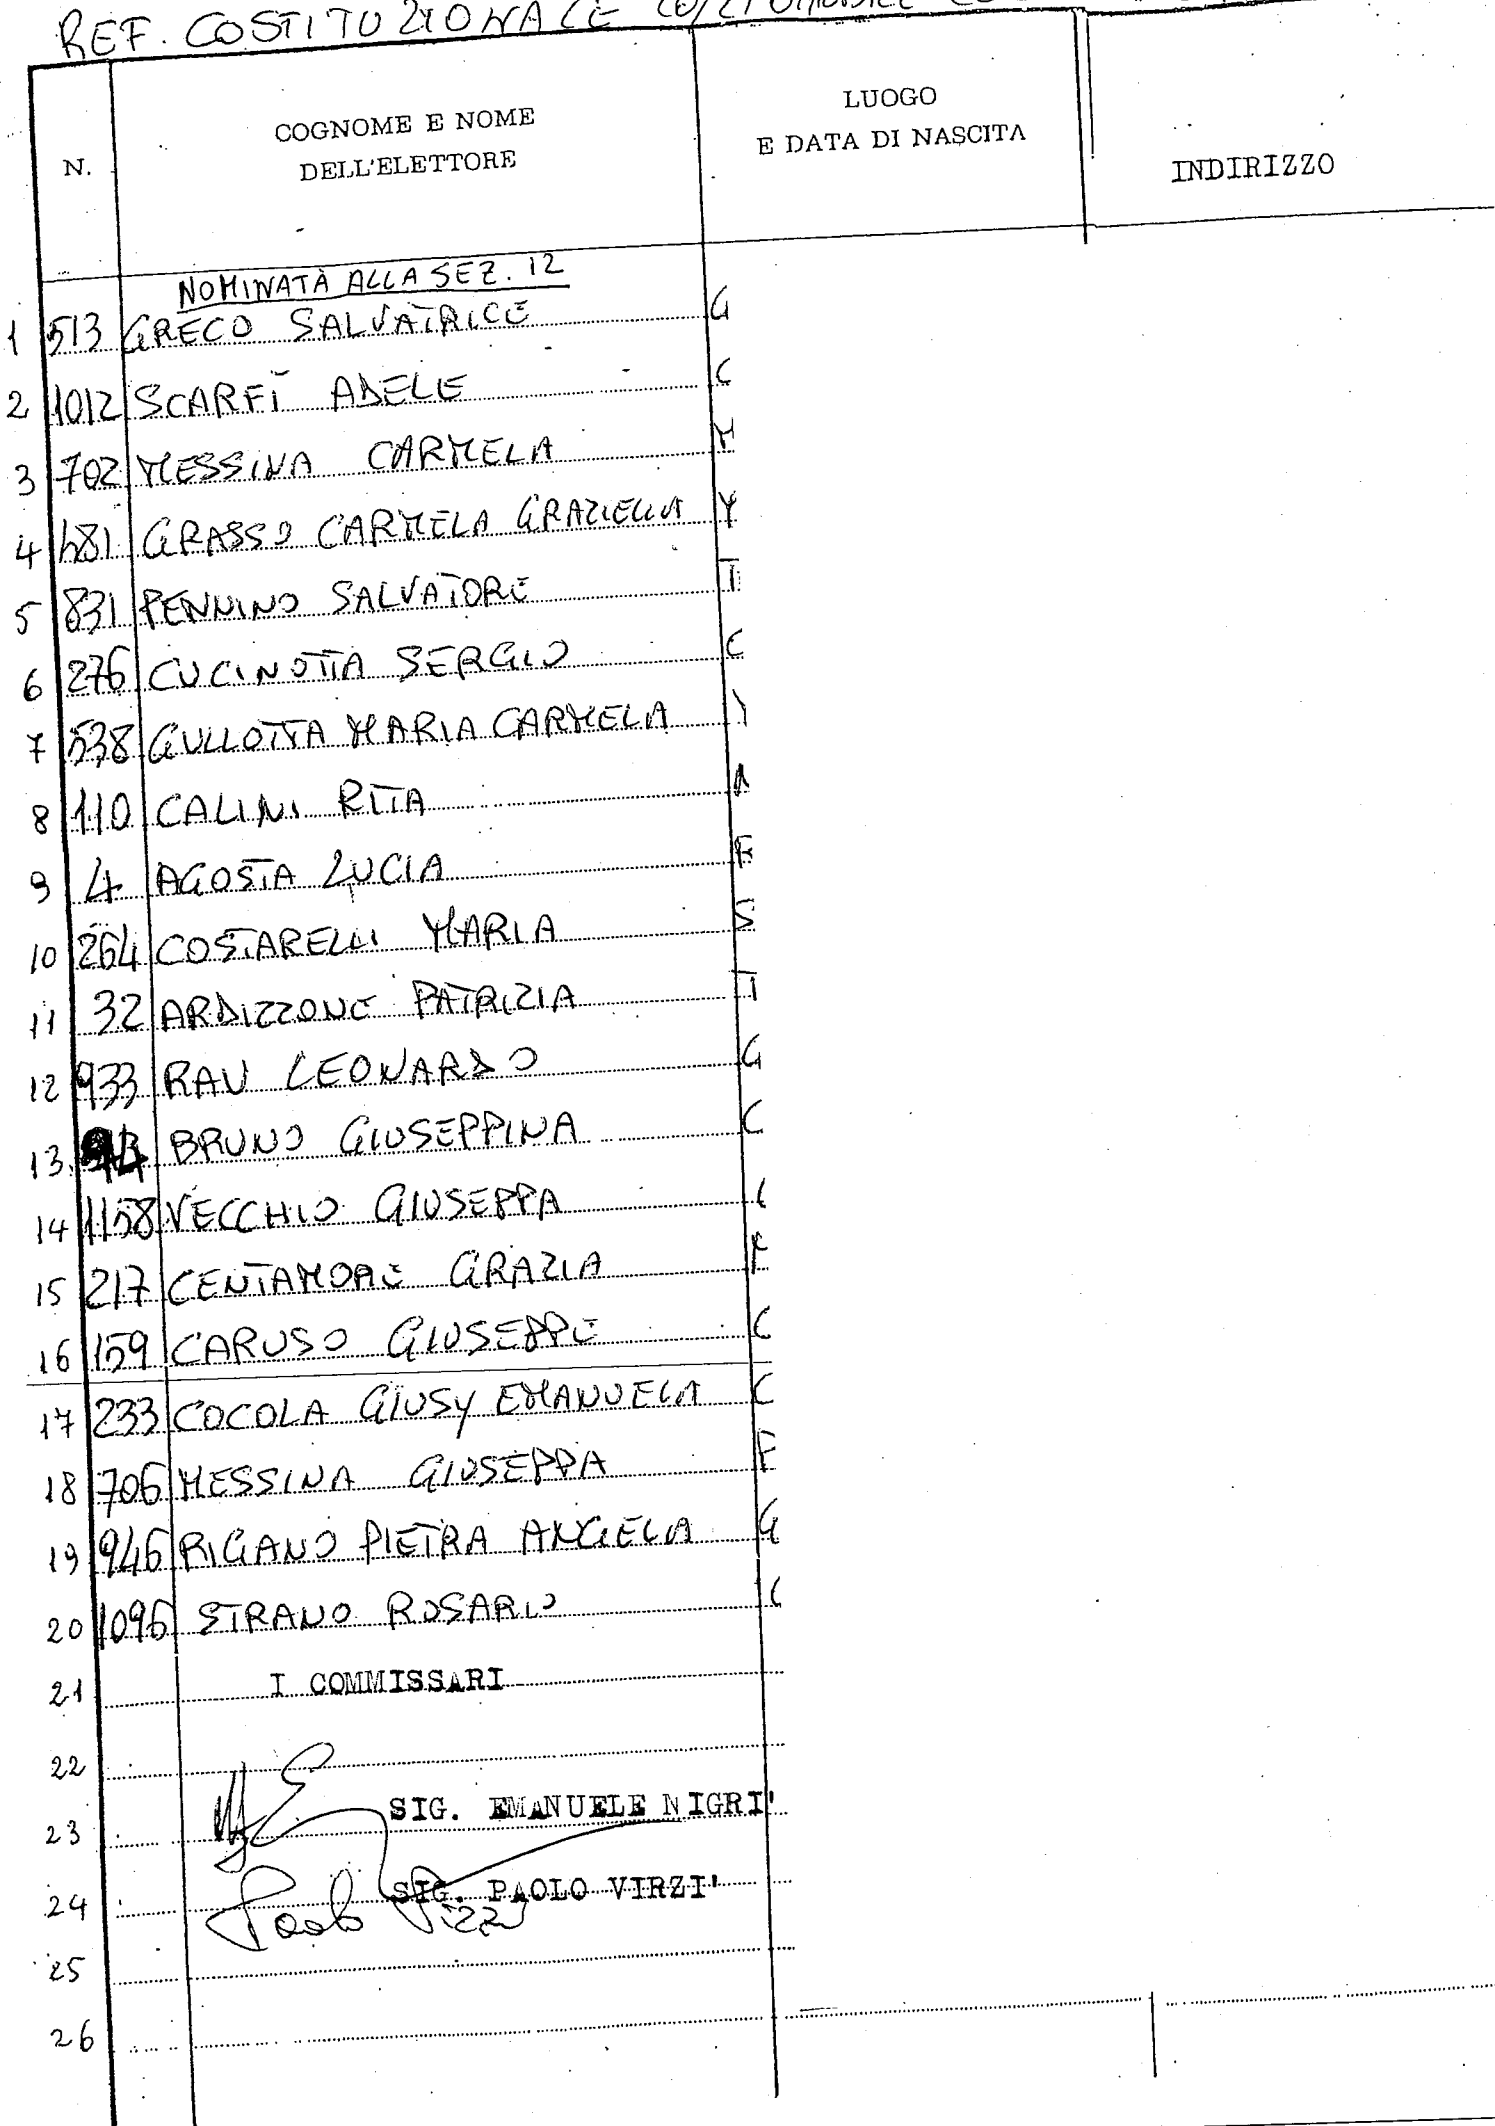 REF. COSTITUZIONALE
N.
COGNOME E NOME
DELL'ELETTORE
LUOGO
E DATA DI NASCITA
INDIRIZZO
NOMINATA ALLA SEZ. 12
1 513 GRECO SALVATRICE G
2 1012 SCARFÌ ADELE C
3 702 MESSINA CARMELA M
4 481 GRASSO CARMELA GRAZIELLA
5 831 PENNINO SALVATORE T
6 276 CUCINOTTA SERGIO C
7 538 GULLOTTA MARIA CARMELA
8 110 CALINI RITA
9 4 AGOSTA LUCIA
10 264 COSTARELLI MARIA S
11 32 ARDIZZONE PATRIZIA T
12 933 RAU LEONARDO G
13 94 BRUNO GIUSEPPINA C
14 1158 VECCHIO GIUSEPPA
15 217 CENTAMORE GRAZIA F
16 159 CARUSO GIUSEPPE C
17 233 COCOLA GIUSY EMANUELA C
18 706 MESSINA GIUSEPPA F
19 946 RIGANO PIETRA ANGELA G
20 1096 STRANO ROSARIO C
21 I COMMISSARI
22
23 SIG. EMANUELE NIGRI'
24 SIG. PAOLO VIRZI'
Paolo Virzì
25
26